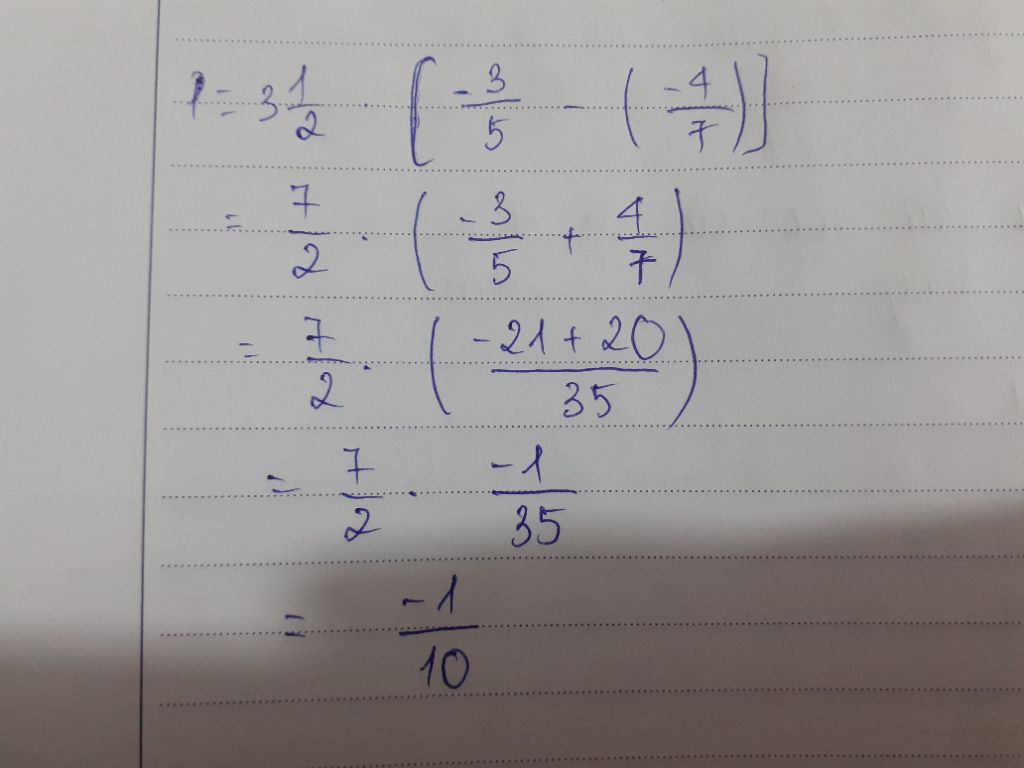 P = 3 1/2 . [ -3/5 - ( -4/7 ) ]
= 7/2 . ( -3/5 + 4/7 )
= 7/2 . ( -21 + 20 / 35 )
= 7/2 . -1/35
= -1/10